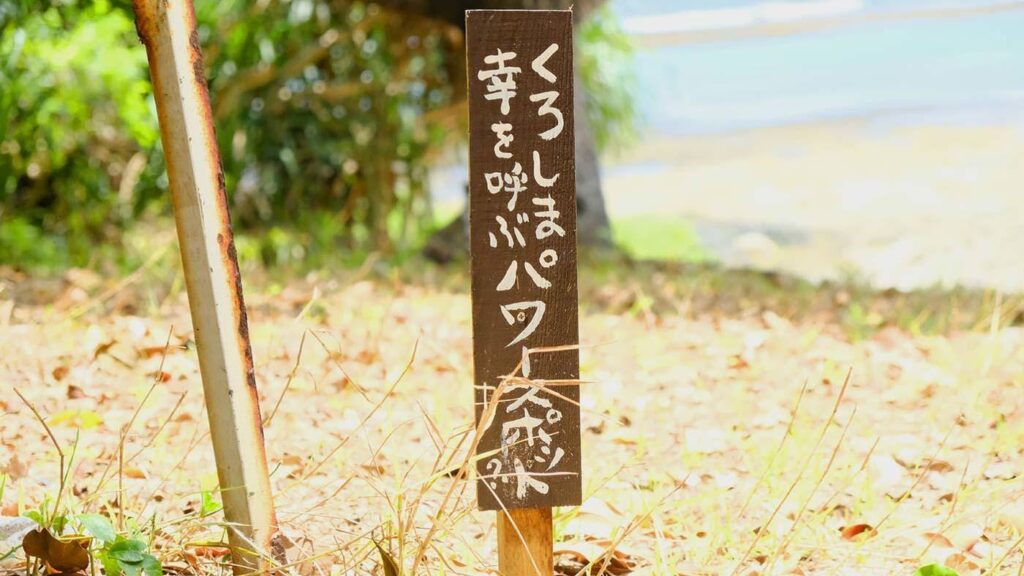 くろしま
幸を呼ぶ
パワースポット